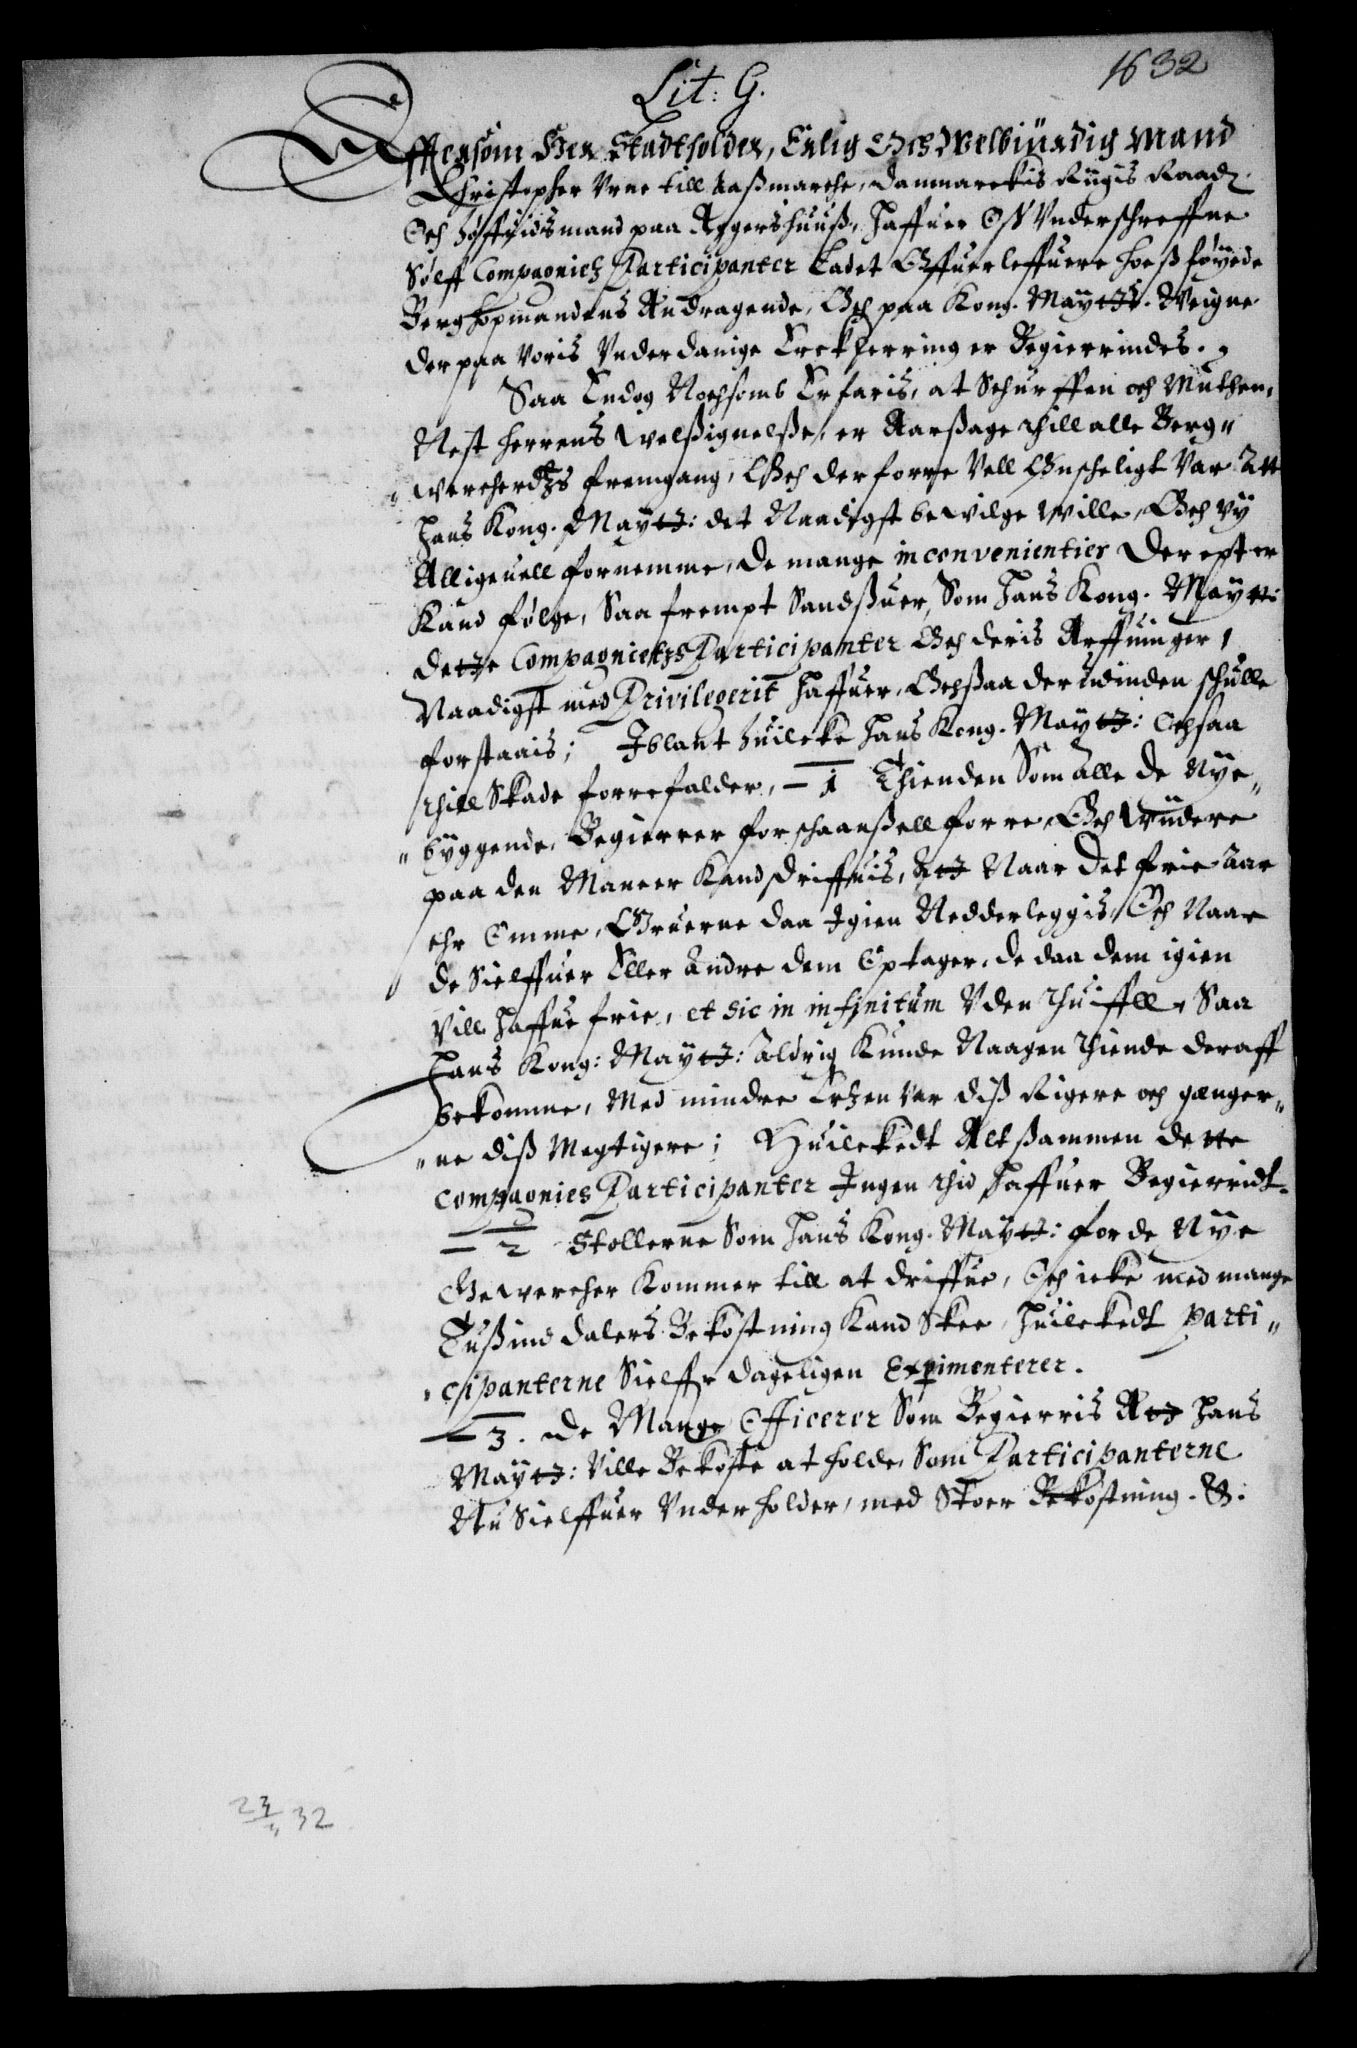 1632
Lit: G.
Effttersom Her Stadtholder, Erlig Och Welbiürdig Mand
Christopher Vrne till Aaßmarche, Danmarckis Riigis Raad,
Och höffuidsmand paa Aggershuuß, Haffuer Oß Vnderschreffne
Sølff Compagnietz Participanter Ladet Offuerleffuere hoeß føyede
Berghopmandens Andragende, Och paa Kong. Maytts. Weigne
der paa Voris Vnderdanige Erckherring er Begierrindes.
Saa Endog Nochsomb Erfaris, at Schürffen och Muthen,
Nest Herrens Welßignelße, er Aarßage thill alle Berg„
„wercherdtzs fremgang, Och derforre Vell Ønscheligt Var Att
Hans Kong. Maytt: det Naadigst bewilge wille, Och vy
Alligeuell fornemme, de mange inconvenientier der epter
Kand følge, Saa frempt Sandßuer, Som Hans Kong. Maytt:
dette Compagnietzs Participanter Och deris Arffuinger,
Naadigst med Privilegerit Haffuer, Ochßaa der udinden schulle
forstaais; Iblant huilcke Hans Kong. Maytt: Ochsaa
thill Skade forrefalder, – 1 Thienden Som alle de Nye„
„byggende, Begierrer forschaanßell forre, Och Widere
paa den Maneer Kand driffuis, Att Naar det frie Aar
ehr Omme, Gruerne daa Igien Nedderleggis, Och Naar
de Sielffuer Eller Andre dem Optager, de daa dem igien
Vill Haffue frie, et sic in infinitum Vden Thuiffll, Saa
Hans Kong: Maytt: Aldrig Kunde Naagen Thiende deraff
bekomme, Med mindre Ertzen var diß Rigere och gænger„
„ne diß Megtigere; Huilckedt Altßammen dette
Compagnies Participanter Ingen thid Haffuer Begierridt.
– 2 Stollerne Som Hans Kong. Maytt: for de Nye
Gewercher Kommer till at driffue, Och icke med mange
Tußind dalers Bekostning Kand Skee, Huilckedt Parti„
„cipanterne Sielff dageligen Experimenterer.
– 3. de Mange Officerer Som Begierris Att Hans
Maytt: Ville Bekoste at holde, Som Participanterne
Nu Sielffuer Vnderholder, med Stoer Bekostning. &.
23/11 32